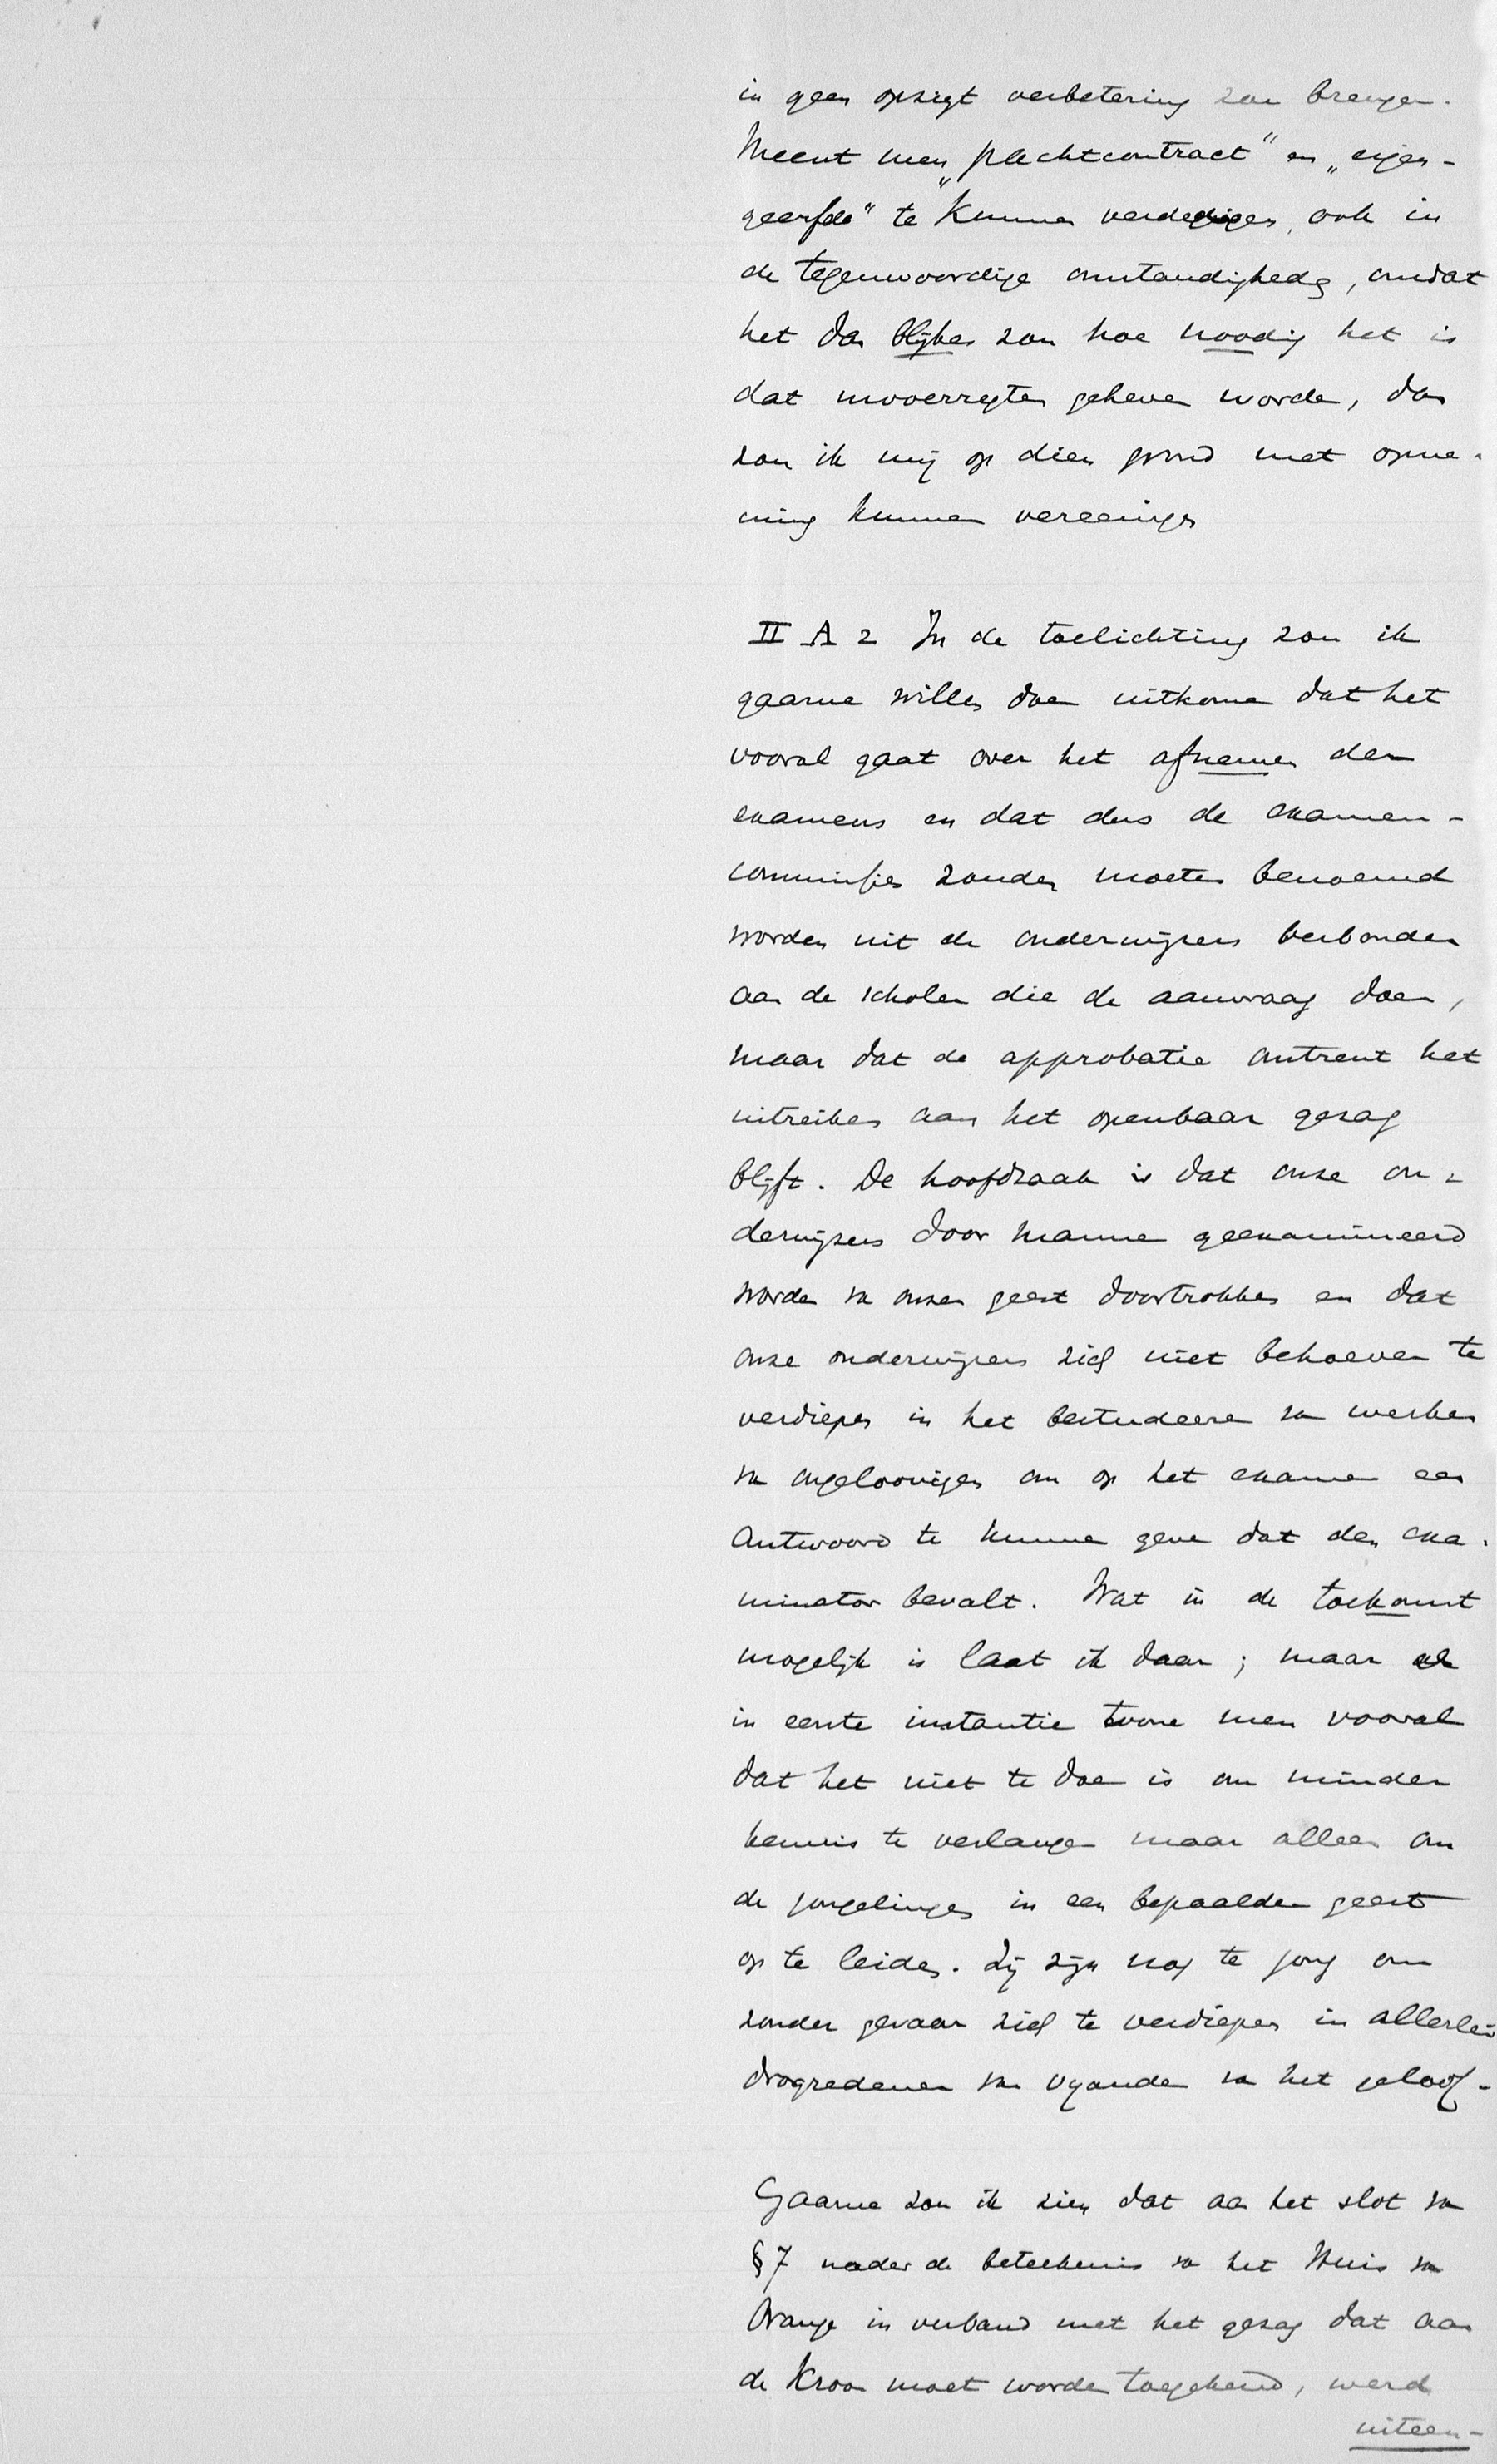 in geen opzigt verbetering zou brengen.
Meent men „pachtcontract" en „eigen-
geerfde" te kunnen verdedigen, ook in
de tegenwoordige omstandigheden, omdat
het dan blijken zou hoe noodig het is
dat invoerregten geheven worden, dan
zou ik mij op dien grond met opne-
ming kunnen vereenigen
II A 2 In de toelichting zou ik
gaarne willen doen uitkomen dat het
vooral gaat over het afnemen der
examens en dat dus de examen-
commissies zouden moeten benoemd
worden uit de onderwijzers verbonden
aan de scholen die de aanvraag doen,
maar dat de approbatie omtrent het
uitreiken aan het openbaar gezag
blijft. De hoofdzaak is dat onze on-
derwijzers door mannen geexamineerd
worden van onzen geest doortrokken en dat
onze onderwijzers zich niet behoeven te
verdiepen in het bestudeeren van werken
van ongeloovigen om op het examen een
antwoord te kunnen geven dat den exa-
minator bevalt. Wat in de toekomst
mogelijk is laat ik daar; maar
in eerste instantie toone men vooral
dat het niet te doen is om minder
kennis te verlangen maar alleen om
de jongelingen in een bepaalden geest
op te leiden. Zij zijn nog te jong om
zonder gevaar zich te verdiepen in allerlei
drogredenen van vijanden van het geloof.
Gaarne zou ik zien dat aan het slot van
§7 nader de beteekenis van het Huis van
Oranje in verband met het gezag dat aan
de Kroon moet worden toegekend, werd
uiteen-